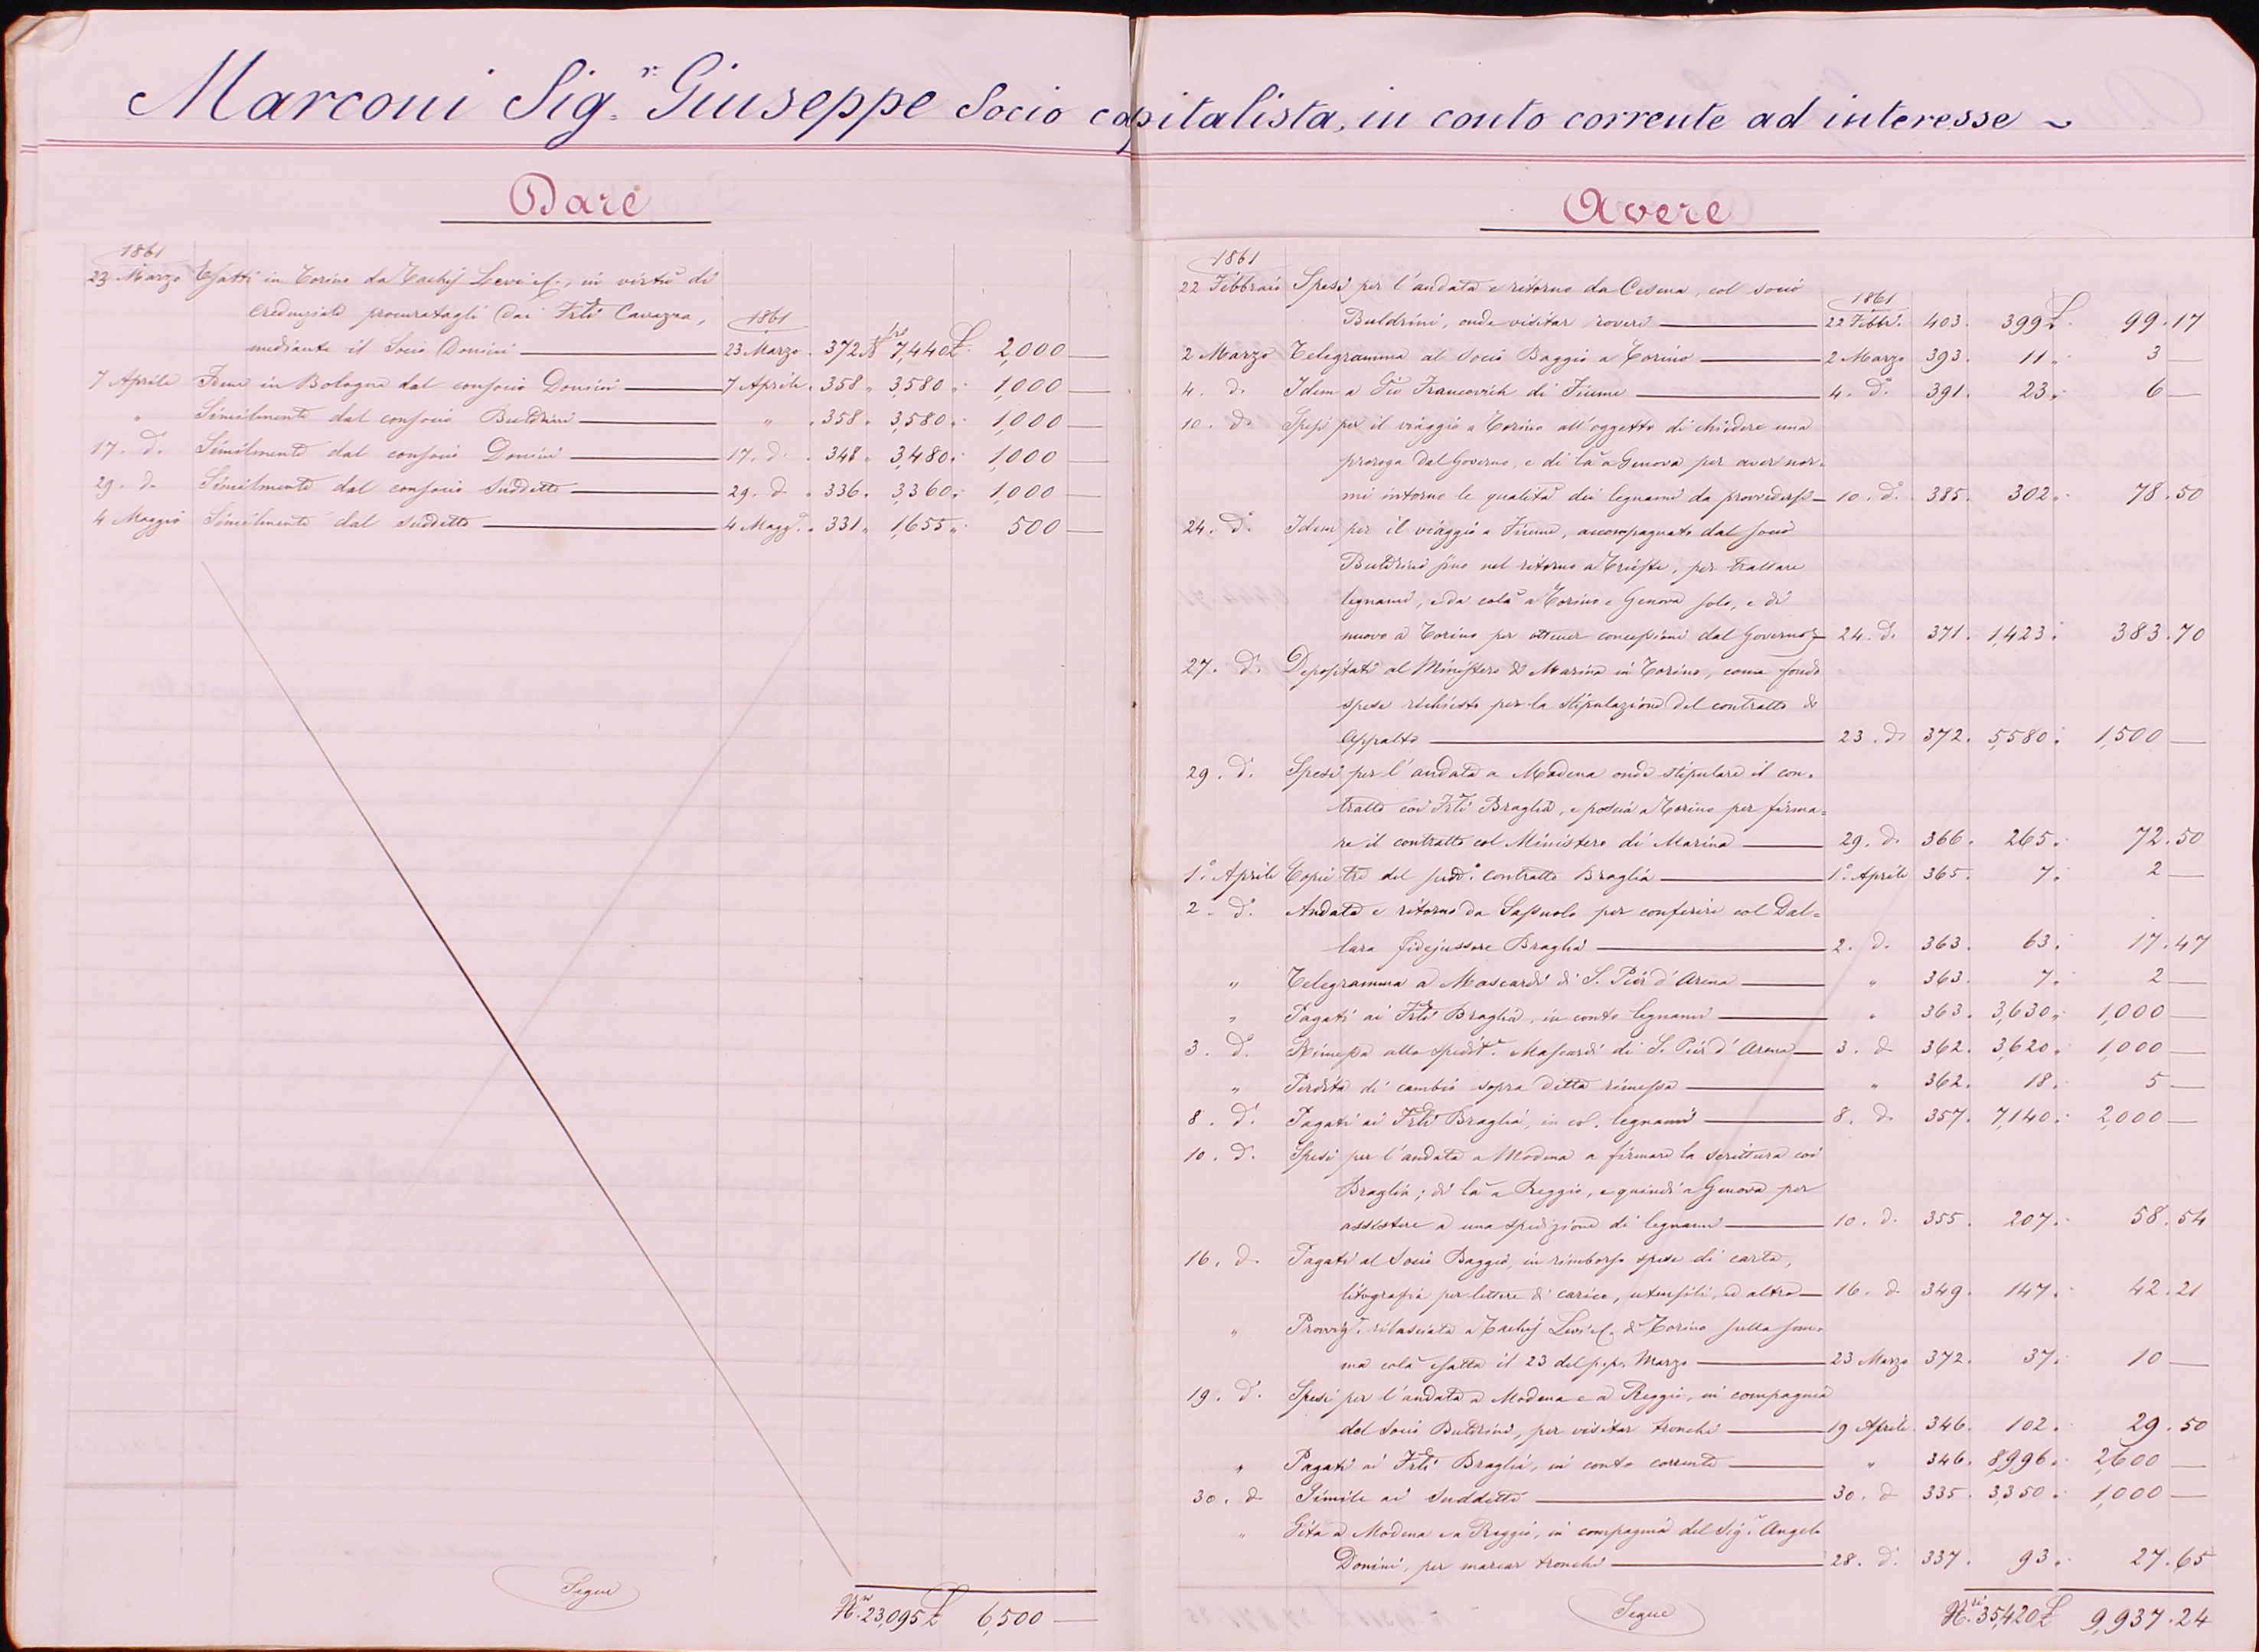 Marconi Sig.r Giuseppe Socio capitalista, in conto corrente ad interesse ~
Dare
1861
23 Marzo Esatti in Torino da Levi e C., in virtù di
credenziale procuratagli dai Flli Cavazza, 1861
mediante il Socio Donini 23 Marzo. 372 N 7,440 £ 2,000 —
7 Aprile in Bologna dal consocio Donini 7 Aprile. 358 „ 3,580 „ 1,000 —
„ Similmente dal consocio Buldrini „ . 358 „ 3,580 „ 1,000 —
17. d. Similmente dal consocio Donini 17. d. . 348 „ 3,480 „ 1,000 —
29. d. Similmente dal consocio Suddetto 29. d . 336 „ 3,360 „ 1,000 —
4 Maggio Similmente dal suddetto 4 Magg.o . 331 „ 1,655 „ 500 —
Segue
N.ri 23,095 £ 6,500 —
Avere
1861
22 Febbraio Spese per l'andata e ritorno da Cesena, col socio 1861
Buldrini, onde visitar roveri 22 Febbr. 403. 399 £. 99.17
2 Marzo Telegramma al Socio Baggio a Torino 2 Marzo 393. 11 „ 3 —
4. d. Idem a Gio Francovich di Fiume 4. d.o 391. 23 „ 6 —
10. d.o Spese per il viaggio a Torino all'oggetto di chiedere una
proroga dal Governo, e di là a Genova per aver nor-
me intorno le qualità dei legnami da provvedersi 10. d.o 385. 302 „ 78.50
24. d.o Idem per il viaggio a Fiume, accompagnato dal socio
Buldrini fino nel ritorno a Trieste, per trattare
legnami, e da colà a Torino e Genova solo, e di
nuovo a Torino per ottener concessioni dal Governo 24. d. 371. 1,423. 383.70
27. d.o Depositati al Ministero di Marina in Torino, come fondo
spese richiesto per la stipulazione del contratto di
Appalto 23. d.o 372. 5,580. 1,500 —
29. d.o Spese per l'andata a Modena onde stipulare il con-
tratto coi Flli Braglia, e poscia a Torino per firma-
re il contratto col Ministero di Marina 29. d. 366. 265 „ 72.50
1.o Aprile Copie tre del sudd.o contratto Braglia 1.o Aprile 365. 7. 2 —
2. d.o Andata e ritorno da Sassuolo per conferire col Dal-
lara fidejussore Braglia 2. d. 363. 63. 17.47
„ Telegramma a Mascardi di S. Pier d'Arena „ 363. 7. 2 —
„ Pagati ai Flli Braglia, in conto legnami „ 363. 3,630 „ 1,000 —
3. d.o Rimessa allo spedit.e Mascardi di S. Pier d'Arena 3. d 362. 3,620. 1,000 —
„ Perdita di cambio sopra detta rimessa „ 362. 18. 5 —
8. d.o Pagati ai Flli Braglia, in col. legnami 8. d. 357. 7,140. 2,000 —
10. d.o Spese per l'andata a Modena a firmare la scrittura coi
Braglia; di là a Reggio, e quindi a Genova per
assistere a una spedizione di legnami 10. d. 355. 207. 58.54
16. d. Pagati al Socio Baggio, in rimborso spese di carta,
litografia per lettere di carico, utensili, ed altro 16. d 349. 147. 42.21
„ Provvig.e rilasciata a Levi e C. di Torino sulla som-
ma colà esatta il 23 del p.p. Marzo 23 Marzo 372. 37. 10 —
19. d.o Spese per l'andata a Modena e a Reggio, in compagnia
del Socio Buldrini, per visitar tronchi 19 Aprile 346. 102. 29.50
„ Pagati ai Flli Braglia, in conto corrente „ 346. 8,996. 2,600 —
30. d Simile ai Suddetti 30. d 335. 3,350. 1,000 —
„ Gita a Modena e a Reggio, in compagnia del Sig.r Angelo
Donini, per marcar tronchi 28. d. 337. 93. 27.65
Segue
N.ri 35,420 £ 9,937.24